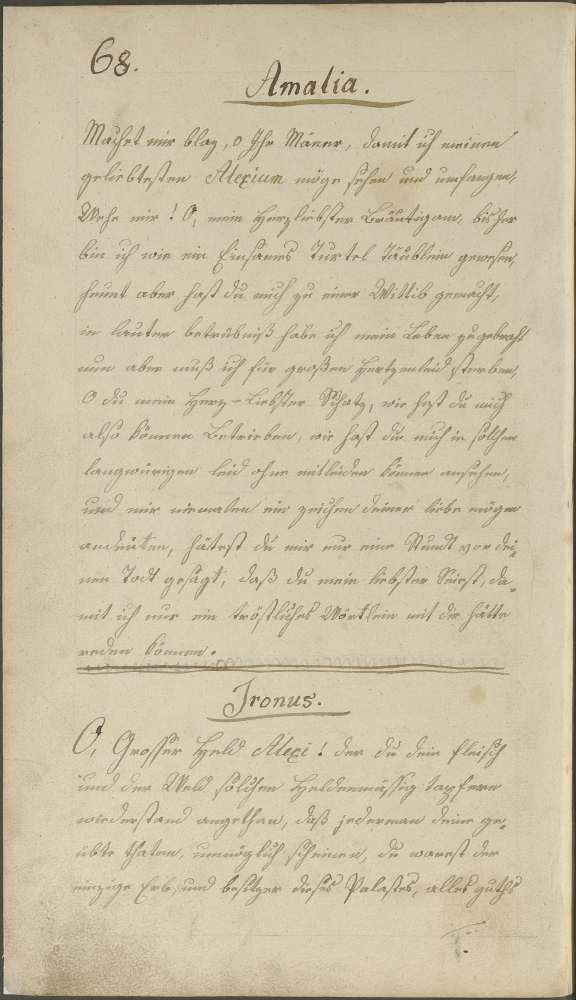 68.
Amalia.
Machet mir blaz, o Ihr Mäner, damit ich meinen
geliebtesten Alexium möge sehen und umfangen,
Wehe mir! O, mein Herzliebster Bräutigam, bisher
bin ich wie ein Einsames Turtel Täublein gewesen,
heunt aber hast du mich zu einer Wittib gemacht,
in lauter betrübniß habe ich mein Leben zugebracht
nun aber muß ich für großen Hertzenleid sterben,
O du mein Herz-Liebster Schatz, wie hast du mich
also können Betrieben, wie hast du mich in solchen
langwürigen Leid ohne mitleiden können ansehen,
und mir niemalen ein zeichen deiner liebe mögen
andeuten, hätest du mir nur eine Stundt vor dei=
nen Todt gesagt, daß du mein liebster Seiest, da=
mit ich nur ein tröstliches Wörtlein mit dir hätte
reden können.
Ironus.
O, Grosser Held Alexi! der du dein fleisch
und der Weld solchen Heldenmässig tapfern
wiederstand angethan, daß jederman deine ge=
übte thaten, unmöglich scheinen, du warest der
einzige Erb, und besitzer dieses Palastes, alles guths